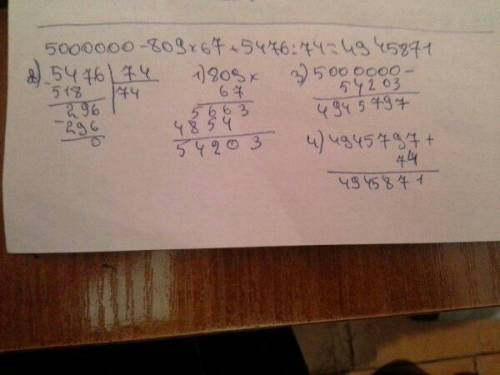 5000000-809×67+5476:74=4945871
2) 5476 | 74
-518 | 74
296
-296
0
1) 809 ×
67
5663
4854
54203
3) 5000000 -
54203
4945797
4) 4945797 +
74
4945871